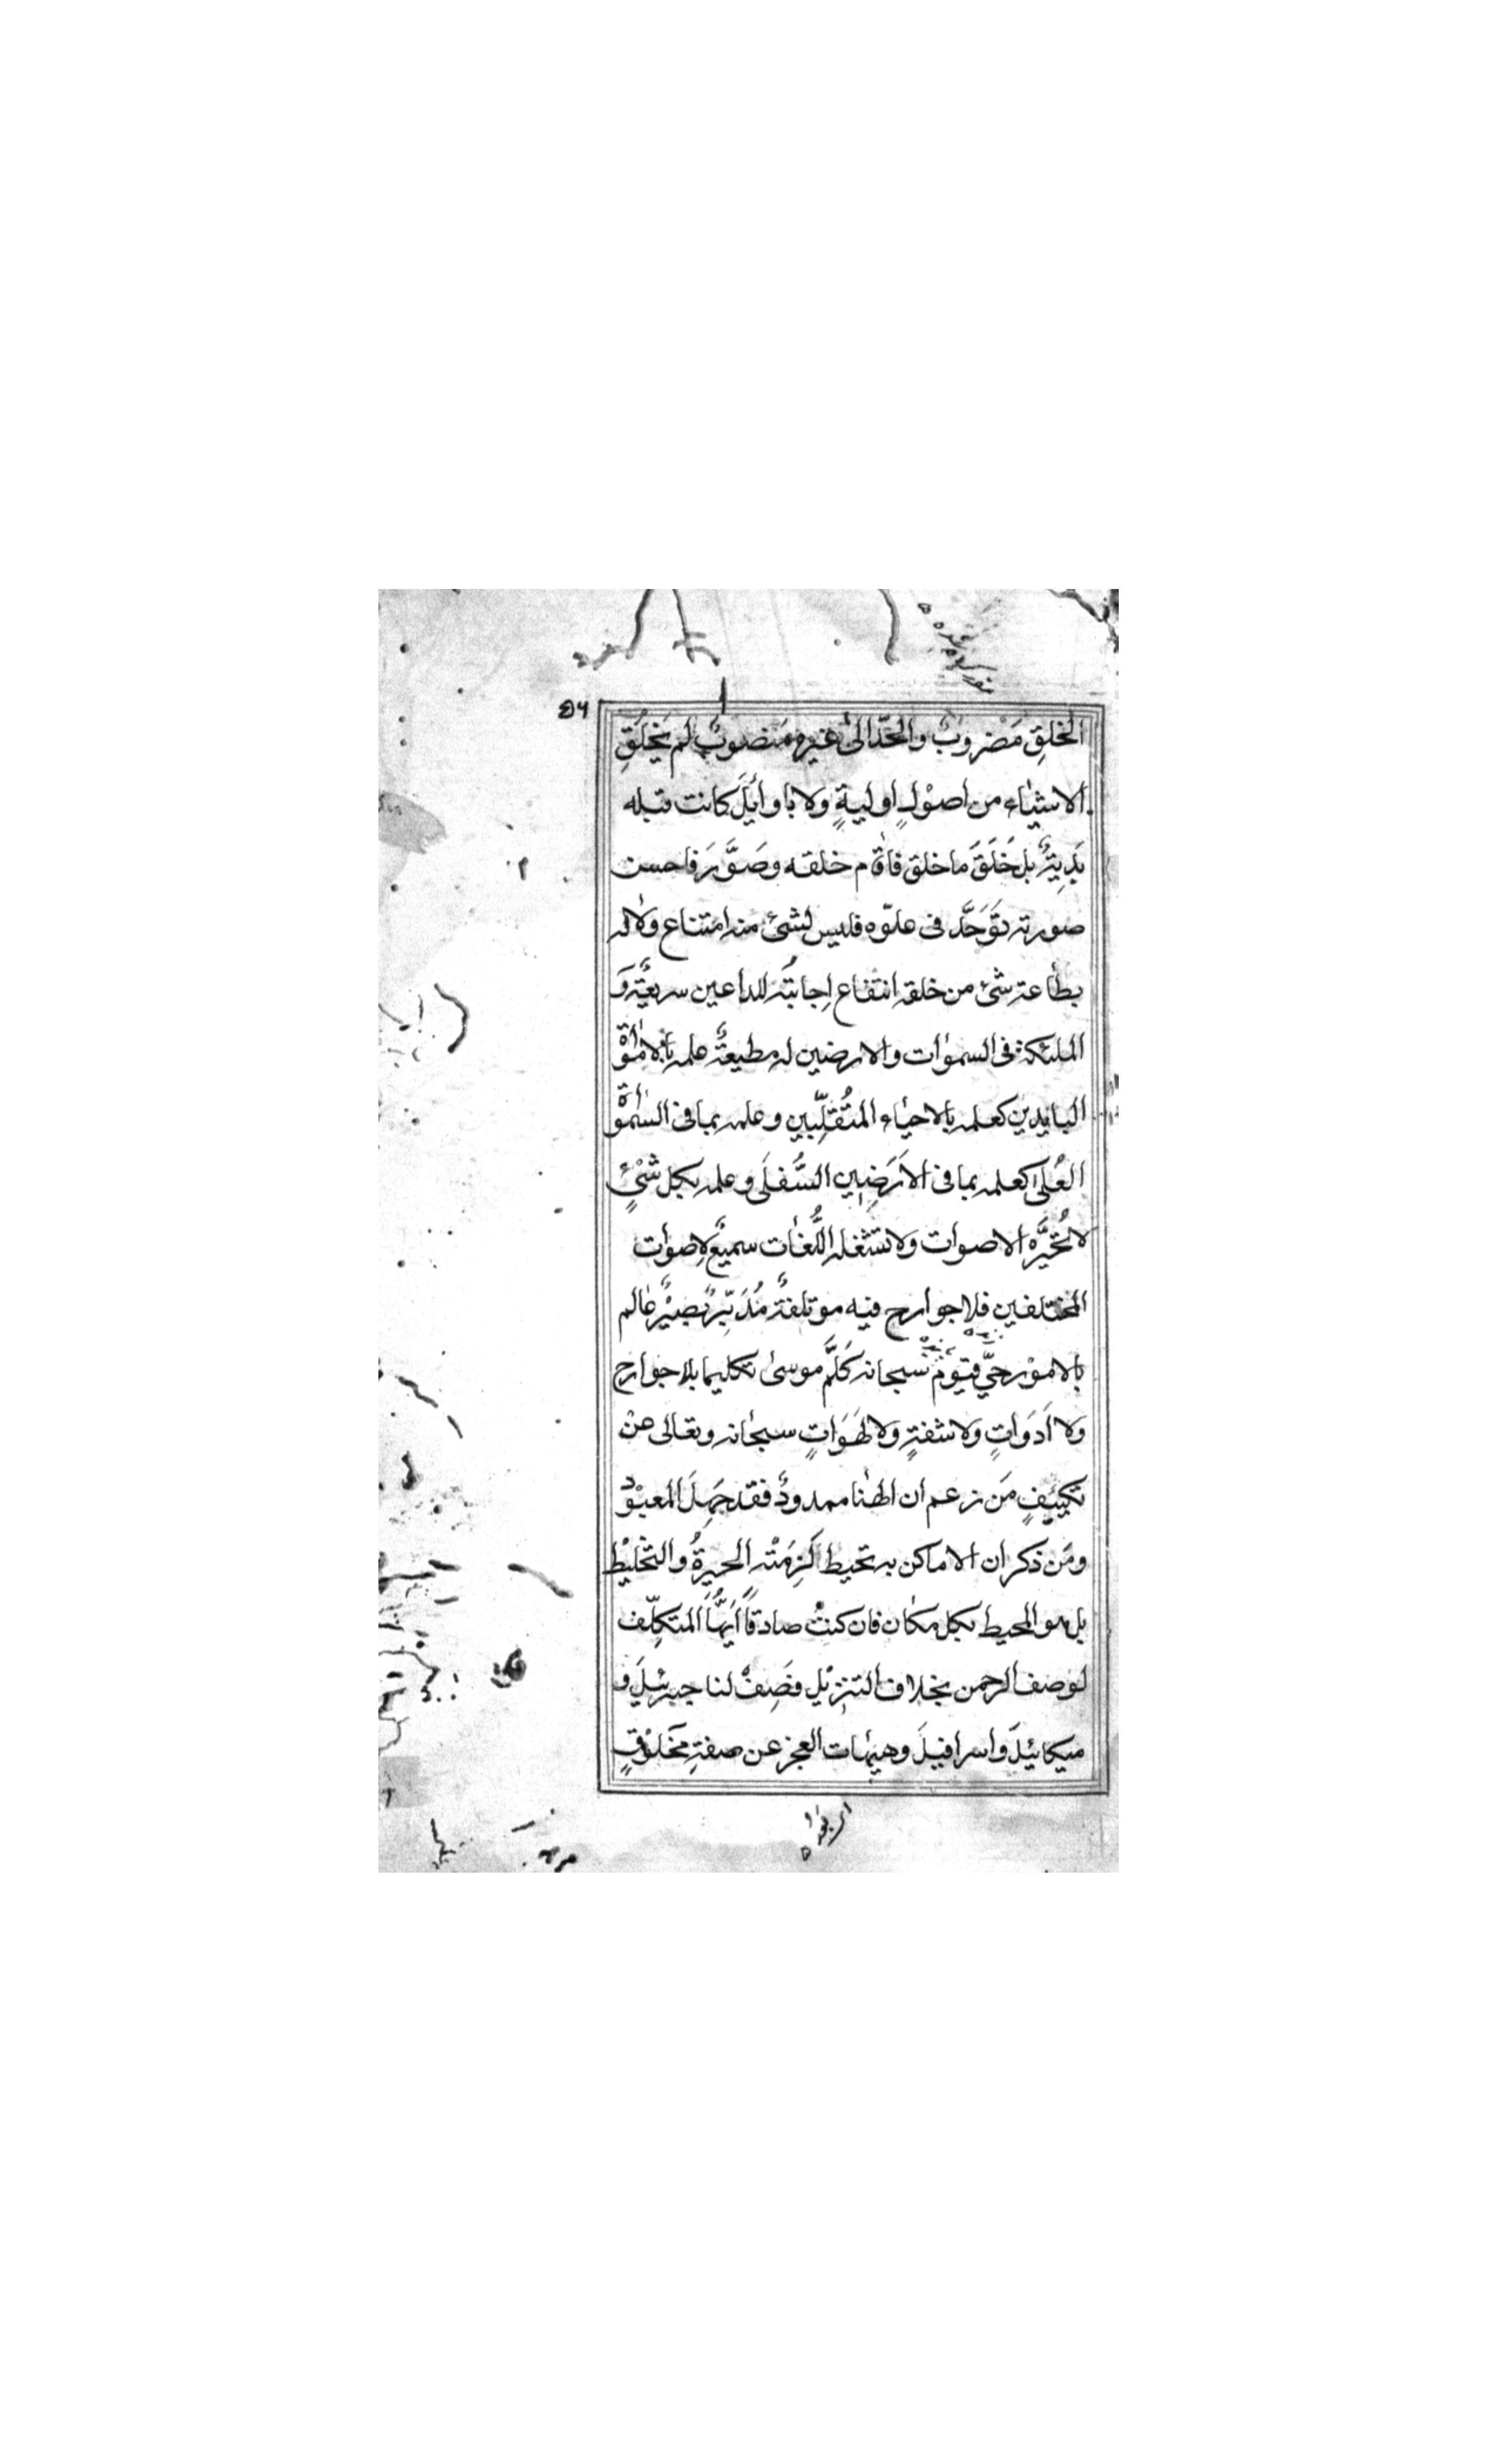 ٥٦
الخلقِ مَضْروبٌ والحدّ الىٰ غيره مَنصوبٌ لم يَخلُقِ
الاشيٰاء من اصوْلٍ اوليةٍ ولا باوأيلَ كانت قبله
بَدِيّةٌ بل خَلَقَ ما خلق فاقام خلقه وصَوَّرَ فاحسن
صورته تَوَحَّد فى علوّه فليس لشئ منه امتناع ولا له
بطاعة شئ من خلقه انتفاع اِجابتُه للداعين سريعةٌ وَ
الملئكة فى السموٰات والارضين له مطيعةٌ علمه بالامواٰة
البايدين كعلمه بالاحيٰاء المتُقلِّبين وعلمه بما فى السمٰواة
العُلىٰ كعلمه بما فى الاَرَضِين السُّفلَى وعلمه بكل شْئٍ
لا تُحَيِّرَه الاصوات ولا تشغله اللُّغٰات سميعٌ لاِصوٰات
المختلفين فلا جوأرح فيه موتلفةٌ مُدَبِّرٌ بصيْرٌ عٰالم
بالاموْر حيّ قيّومٌ سبحانه كَلَّمَ موسىٰ تكليما بلا جوارح
ولا اَدَوَاتٍ ولا شفةٍ ولا لَهَوَاتٍ سبحٰانه وتعالى عنْ
تكييفٍ مَن زعم ان الهنٰا ممدودٌ فقد جَهِلَ المعبوْد
ومَن ذكر ان الاماكن به تحيط لَزِمَتْه الحيرةُ والتخليْط
بل هو المحيط بكل مكٰان فان كنتُ صادقاً اَيُّهَا المتكلِّف
لوصف الرحمن بخلاف التنزيْل فصِفْ لنا جبرئيلَ و
ميكائيلَ واسرافيلَ وهيهٰات العجز عن صفةِ مَخلوْقٍ